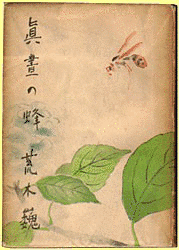 眞晝の蜂 荒木巍